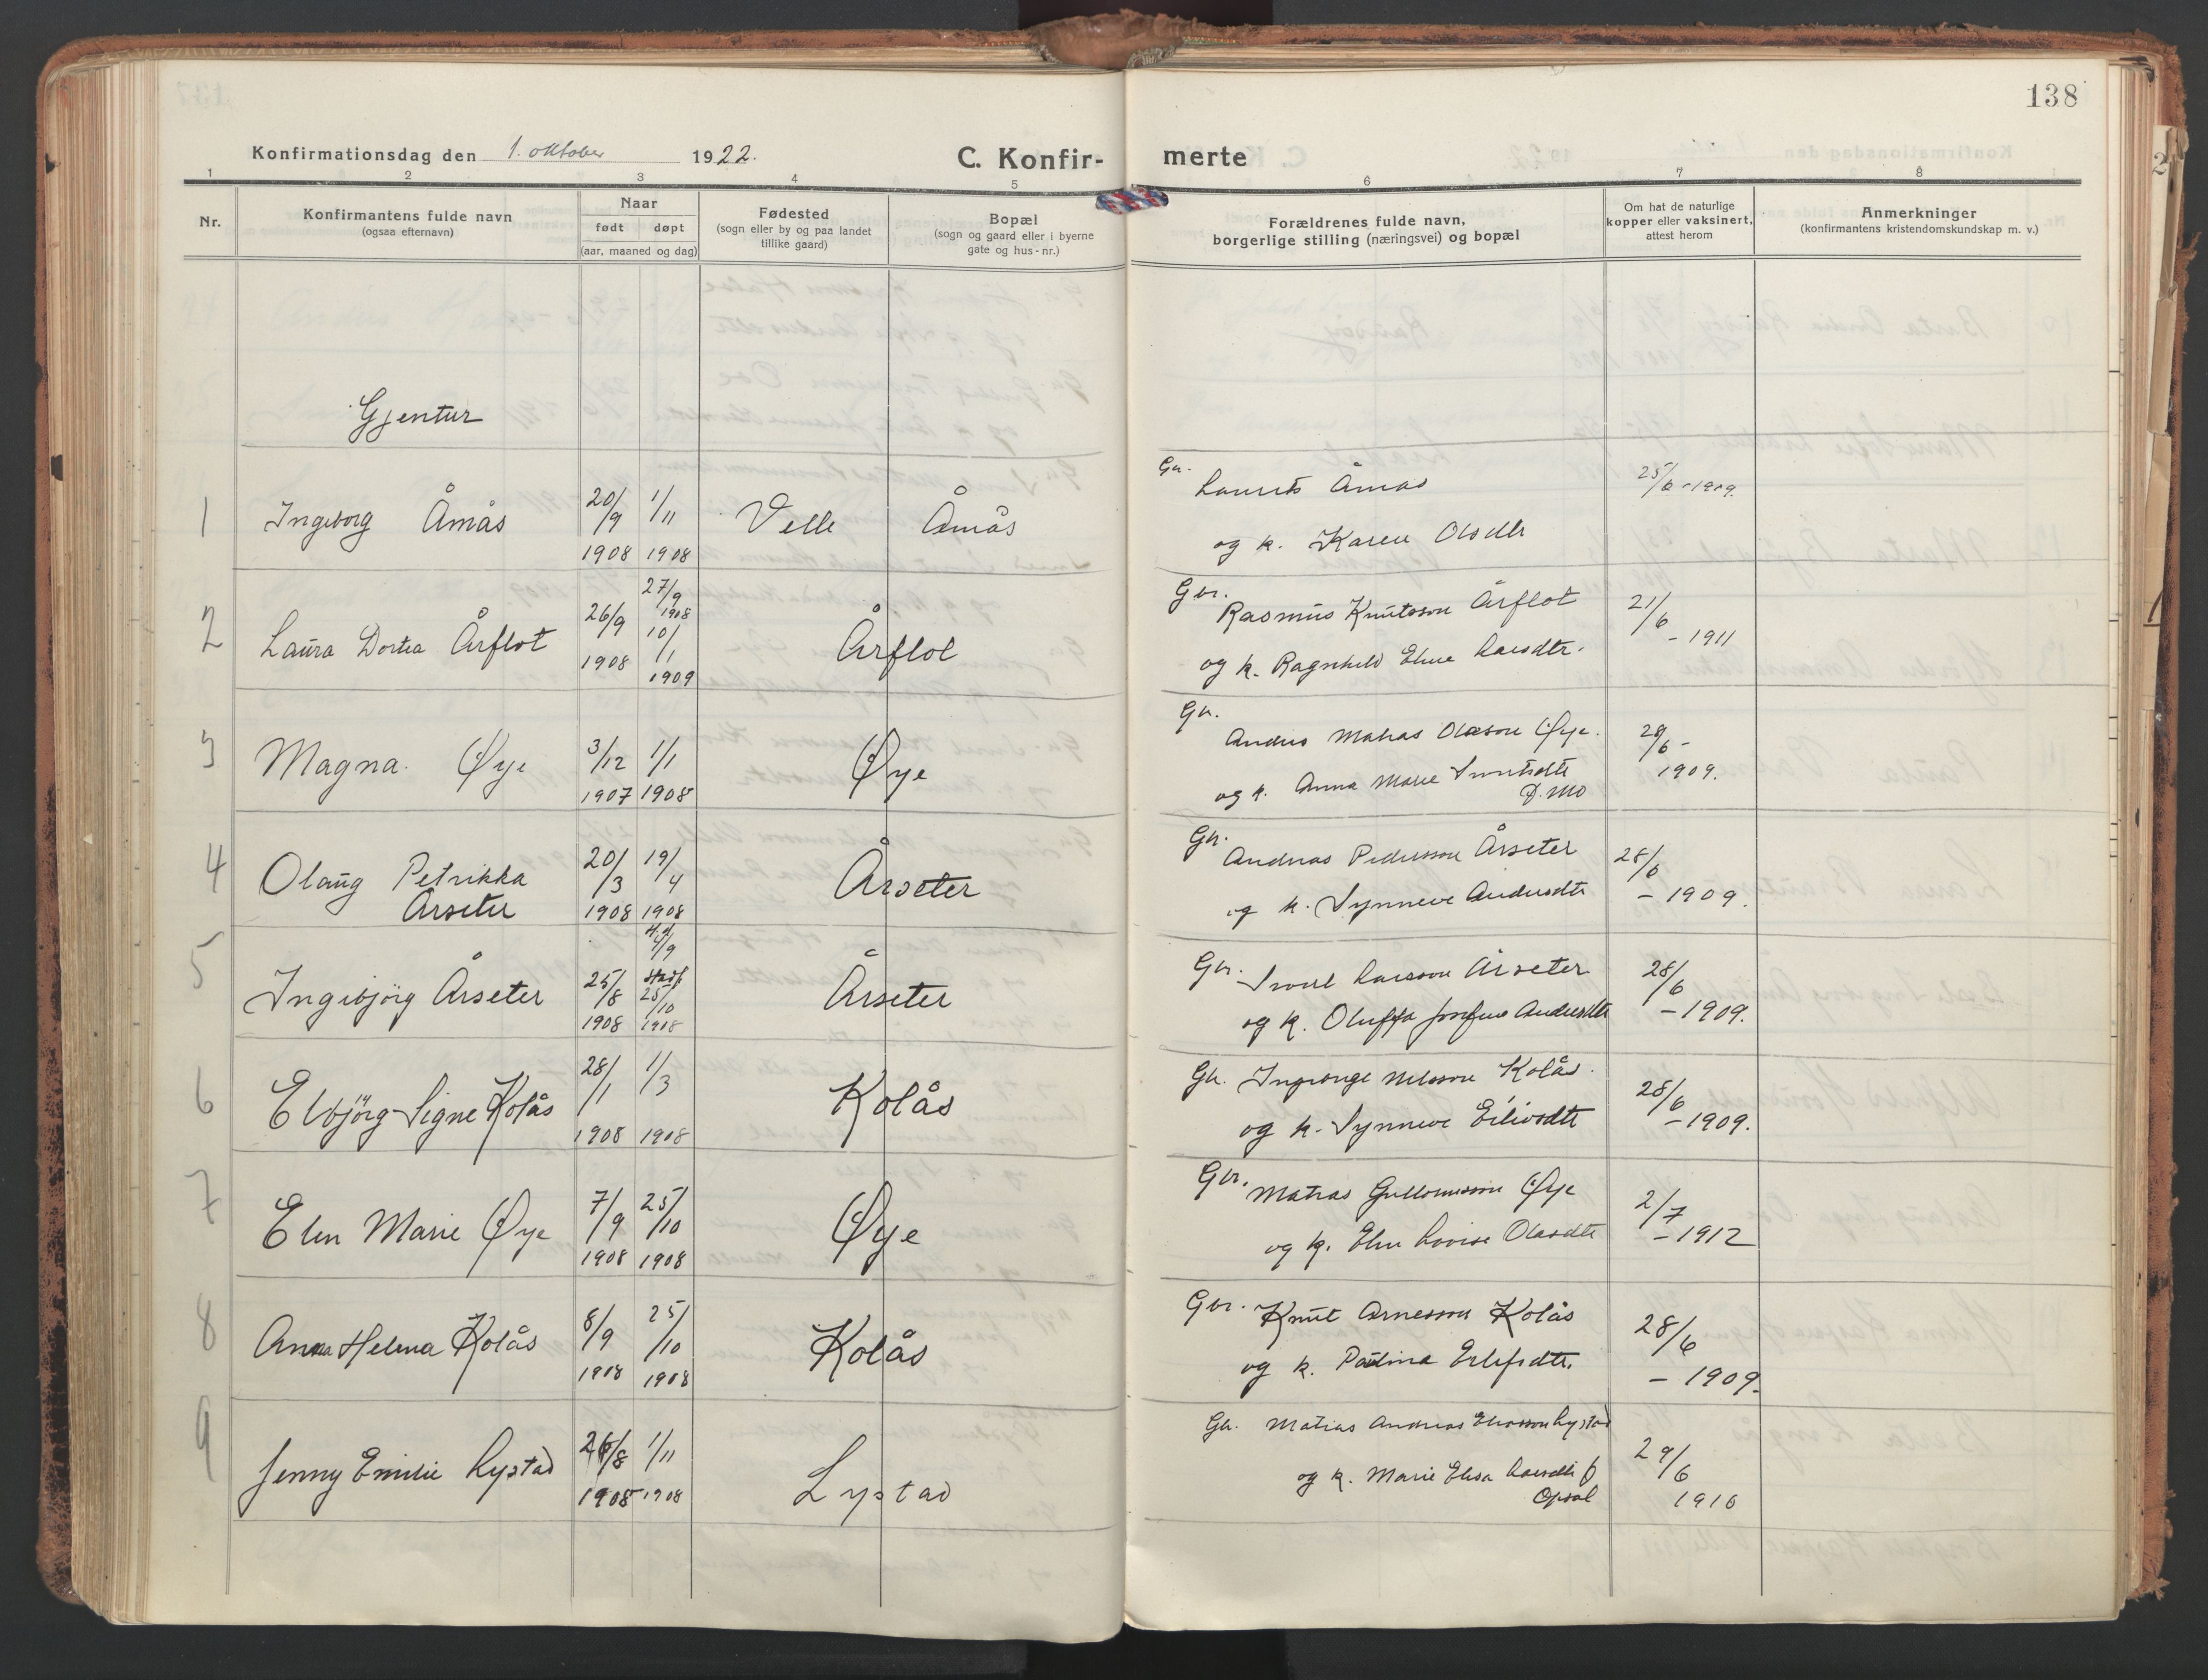 138
Konfirmationsdag den 1. oktober 1922.
C. Konfir-merte
1 2 3 4 5 6 7 8
Nr.
Konfirmantens fulde navn
(ogsaa efternavn)
Naar
født døpt
(aar, maaned og dag)
Fødested
(sogn eller by og paa landet
tillike gaard)
Bopæl
(sogn og gaard eller i byerne
gate og hus-nr.)
Forældrenes fulde navn,
borgerlige stilling (næringsvei) og bopæl
Om hat de naturlige
kopper eller vaksinert,
attest herom
Anmerkninger
(konfirmantens kristendomskundskap m. v.)
Gjentur
1 Ingeborg Åmås 20/9 1908 1/11 1908 Velle Åmås
Gbr. Laurits Åmås
og k. Karen Olsdtr 25/6 - 1909.
2 Laura Dortea Årflot 26/9 1908 27/9 1908 10/1 1909 Årflot
Gbr. Rasmus Knutsson Årflot
og k. Ragnhild Eline Larsdtr. 21/6 - 1911
3 Magna. Øye 3/12 1907 1/1 1908 Øye
Gbr. Anders Matias Olason Øye.
og k. Anna Marie
D. Mo 28/6 - 1909.
4 Olaug Petrikka
Årseter 20/3 1908 19/4 1908 Årseter
Gbr. Andreas Pedersson Årseter
og k. Synneve Andersdtr 28/6 - 1909.
5 Ingebjörg Årseter 25/8 1908 H.d. 4/9 stadf. 25/10 1908 Årseter
Gbr. Sivert Larsson Årseter
og k. Oluffa Josefine Andersdtr 28/6 - 1909.
6 Elbjörg Signe Kolås 28/1 1908 1/3 1908 Kolås
Gbr. Ingebrigt Nilsson Kolås.
og k. Synneve Eilivsdtr 28/6 - 1909.
7 Elen Marie Øye 7/9 1908 25/10 1908 Øye
Gbr. Matias Guttormsson Øye
og k. Eline Lovise Olasdtr 2/7 - 1912
8 Anna Helena Kolås 8/9 1908 25/10 1908 Kolås
Gbr. Knut Arnesson Kolås
og k. Paulina Eilefsdtr. 28/6 - 1909.
9 Jenny Emilie Lystad 26/8 1908 1/11 1908 Lystad
Gbr. Matias Andreas Eliasson Lystad
og k. Marie Elisa Larsdtr f.
Opsal 29/6 1910